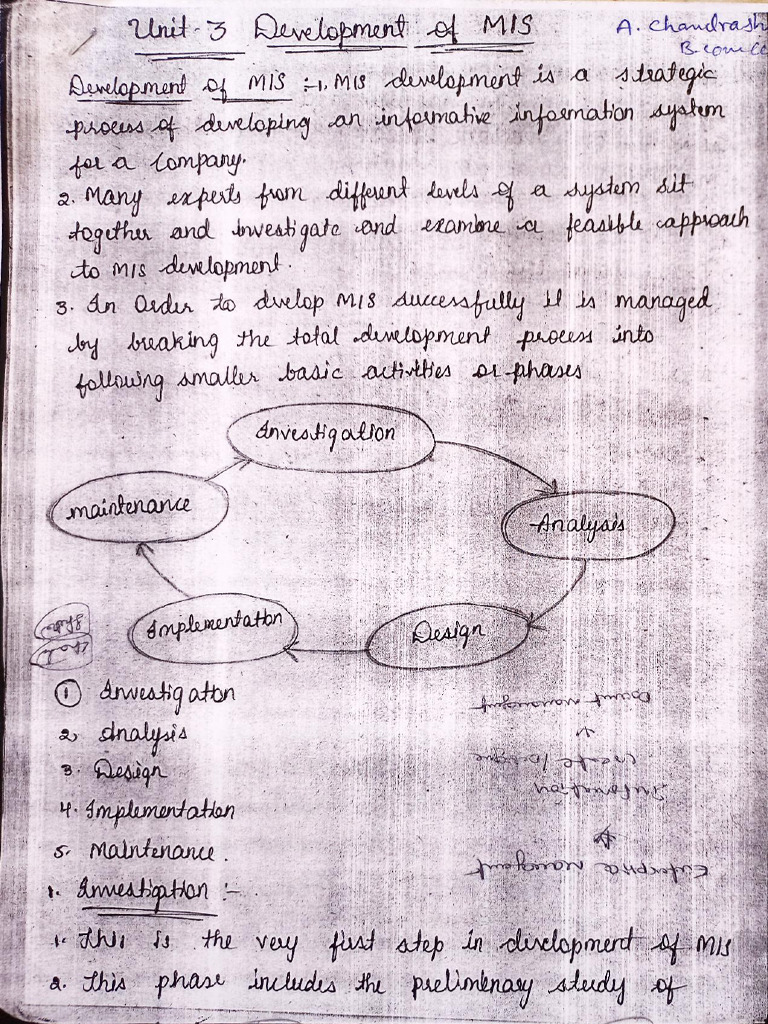 Unit-3 Development of MIS
A. Chandrash
B.com
Development of MIS :-1. MIS development is a strategic
process of developing an informative information system
for a company.
2. Many experts from different levels of a system sit
together and investigate and examine a feasible approach
to MIS development.
3. In Order to dvelop MIS successfully it is managed
by breaking the total development process into
following smaller basic activities or phases
Investigation
maintenance
Analysis
Implementation
Design
① Investigation
2. Analysis
3. Design
4. Implementation
5. Maintenance.
1. Investigation :-
1. This is the very first step in development of MIS
2. This phase includes the preliminary study of